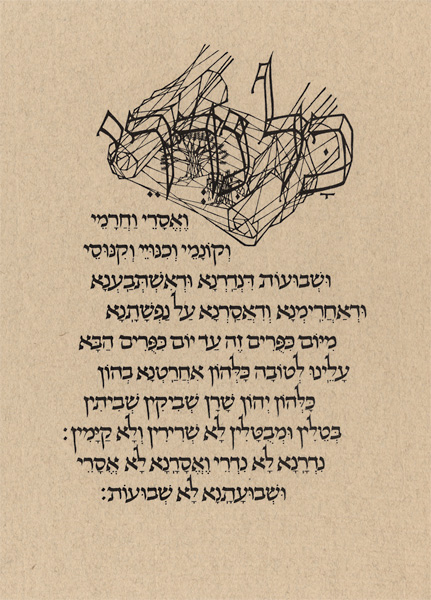 כָּל נִדְרֵי
וֶאֱסָרֵי וַחֲרָמֵי
וְקוֹנָמֵי וְכִנּוּיֵי וְקִנּוּסֵי
וּשְׁבוּעוֹת דִּנְדַרְנָא וּדְאִשְׁתַּבַּעְנָא
וּדְאַחֲרֵימְנָא וְדַאֲסַרְנָא עַל נַפְשָׁתָנָא
מִיּוֹם כִּפֻּרִים זֶה עַד יוֹם כִּפֻּרִים הַבָּא
עָלֵינוּ לְטוֹבָה כֻּלְּהוֹן אִחֲרַטְנָא בְהוֹן
כֻּלְּהוֹן יְהוֹן שָׁרָן שְׁבִיקִין שְׁבִיתִין
בְּטֵלִין וּמְבֻטָּלִין לָא שְׁרִירִין וְלָא קַיָּמִין:
נִדְרָנָא לָא נִדְרֵי וֶאֱסָרָנָא לָא אֱסָרֵי
וּשְׁבוּעָתָנָא לָא שְׁבוּעוֹת: